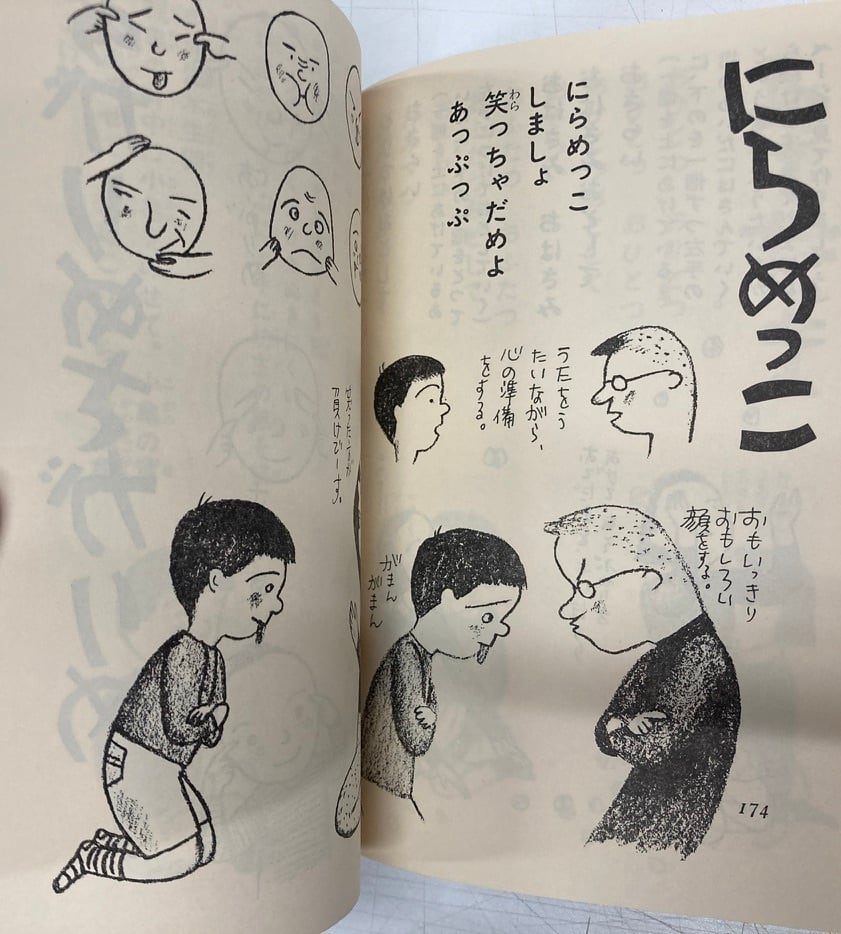 にらめっこ
にらめっこ
しましょ
笑っちゃだめよ
わら
あっぷっぷ
うたをう
たいながら、
心の準備
をする。
おもいっきり
おもしろい
顔をする。
がまん
がまん
174
笑ったほうが
負けでーす。